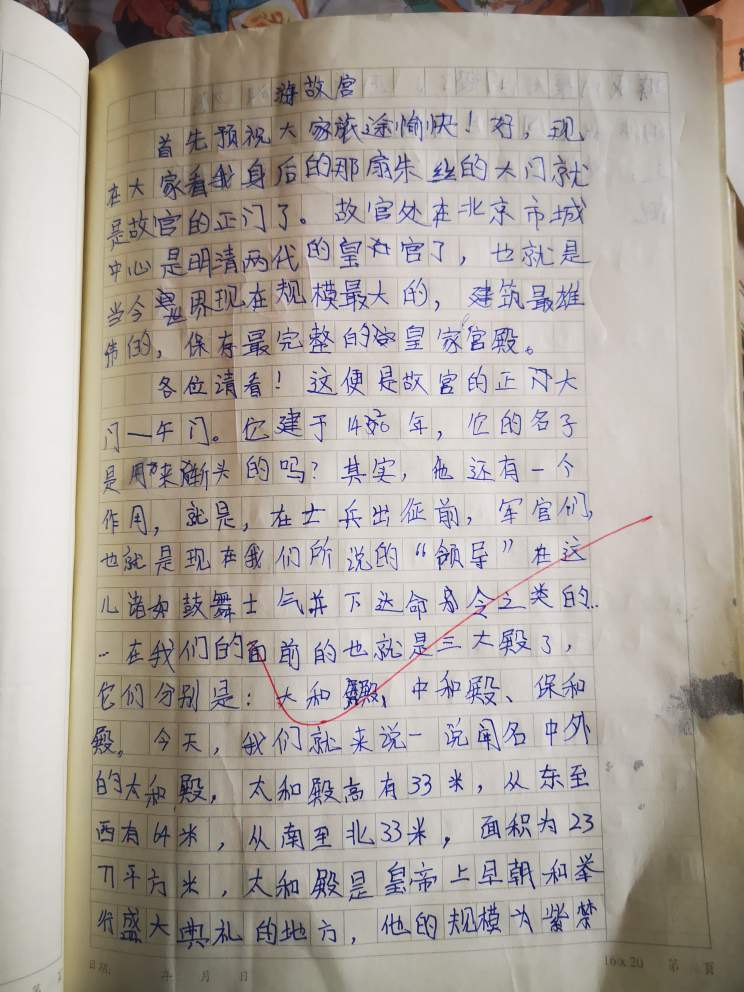 游故宫
首先预祝大家旅途愉快！好，现
在大家看我身后的那扇朱丝的大门就
是故宫的正门了。故宫处在北京市城
中心是明清两代的皇宫了，也就是
当今世界现在规模最大的，建筑最雄
伟的，保存最完整的皇家宫殿。
各位请看！这便是故宫的正门大
门—午门。它建于14年，它的名子
是用来斩头的吗？其实，他还有一个
作用，就是，在士兵出征前，军官们，
也就是现在我们所说的“领导”在这
儿诸如鼓舞士气并下达命令之类的..
..在我们的面前的也就是三大殿了，
它们分别是：大和殿，中和殿、保和
殿。今天，我们就来说一说闻名中外
的太和殿，太和殿高有33米，从东至
西有64米，从南至北33米，面积为23
万平方米，太和殿是皇帝上早朝和举
行盛大典礼的地方，他的规模为紫禁
日期： 年 月 日
16×20 第 頁